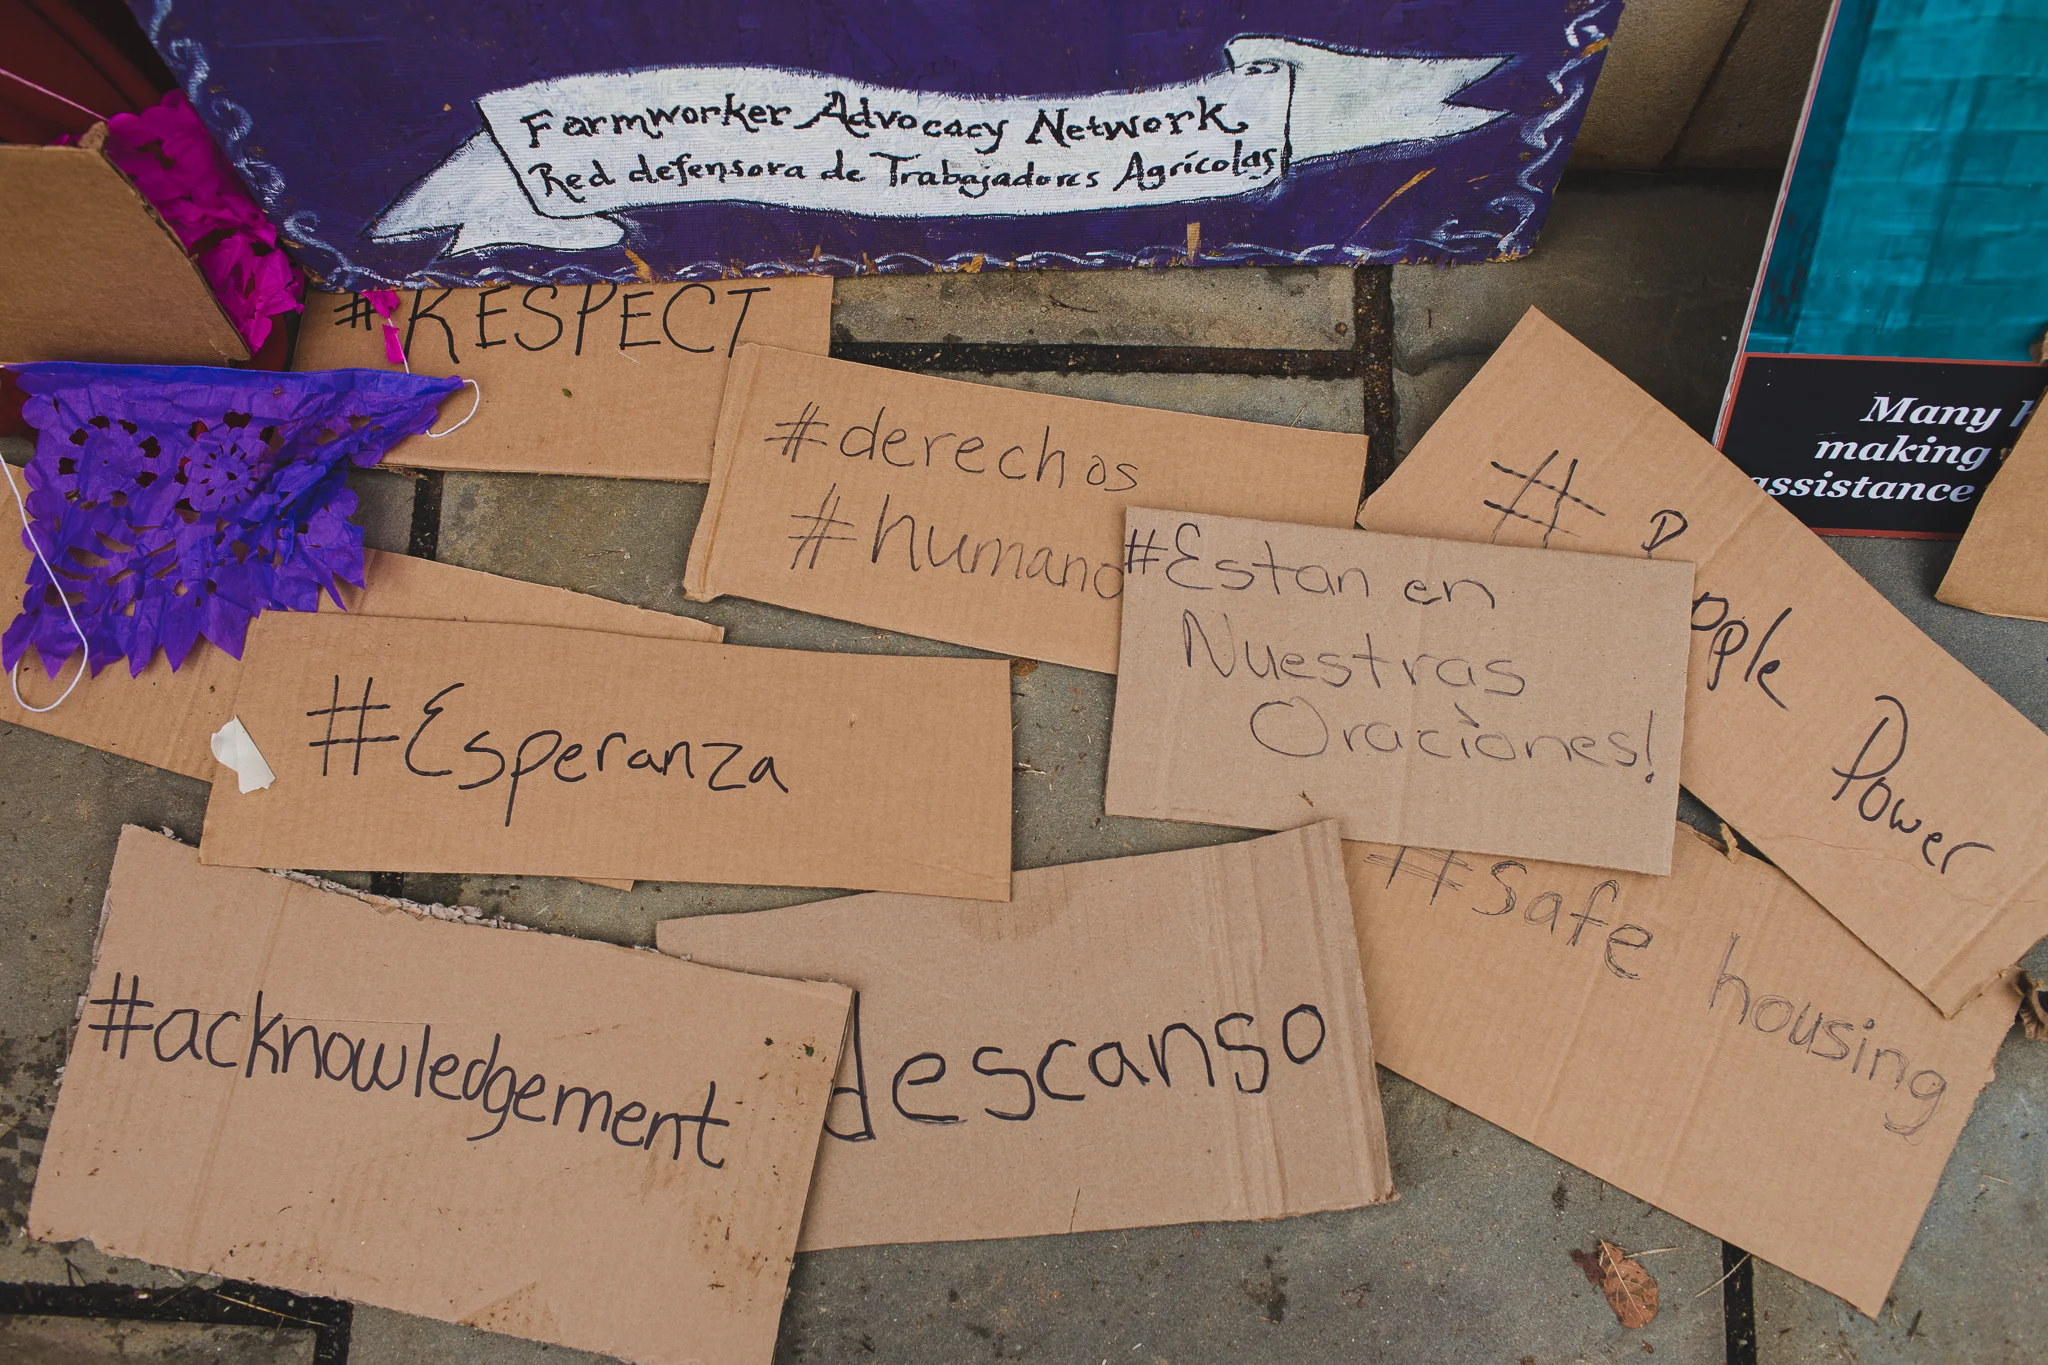 Farmworker Advocacy Network
Red defensora de Trabajadores Agrícolas
#RESPECT
#derechos
#humano
#Estan en
Nuestras
Oraciones!
#
ople
Power
Many
making
assistance
#Esperanza
#safe housing
#acknowledgement
descanso